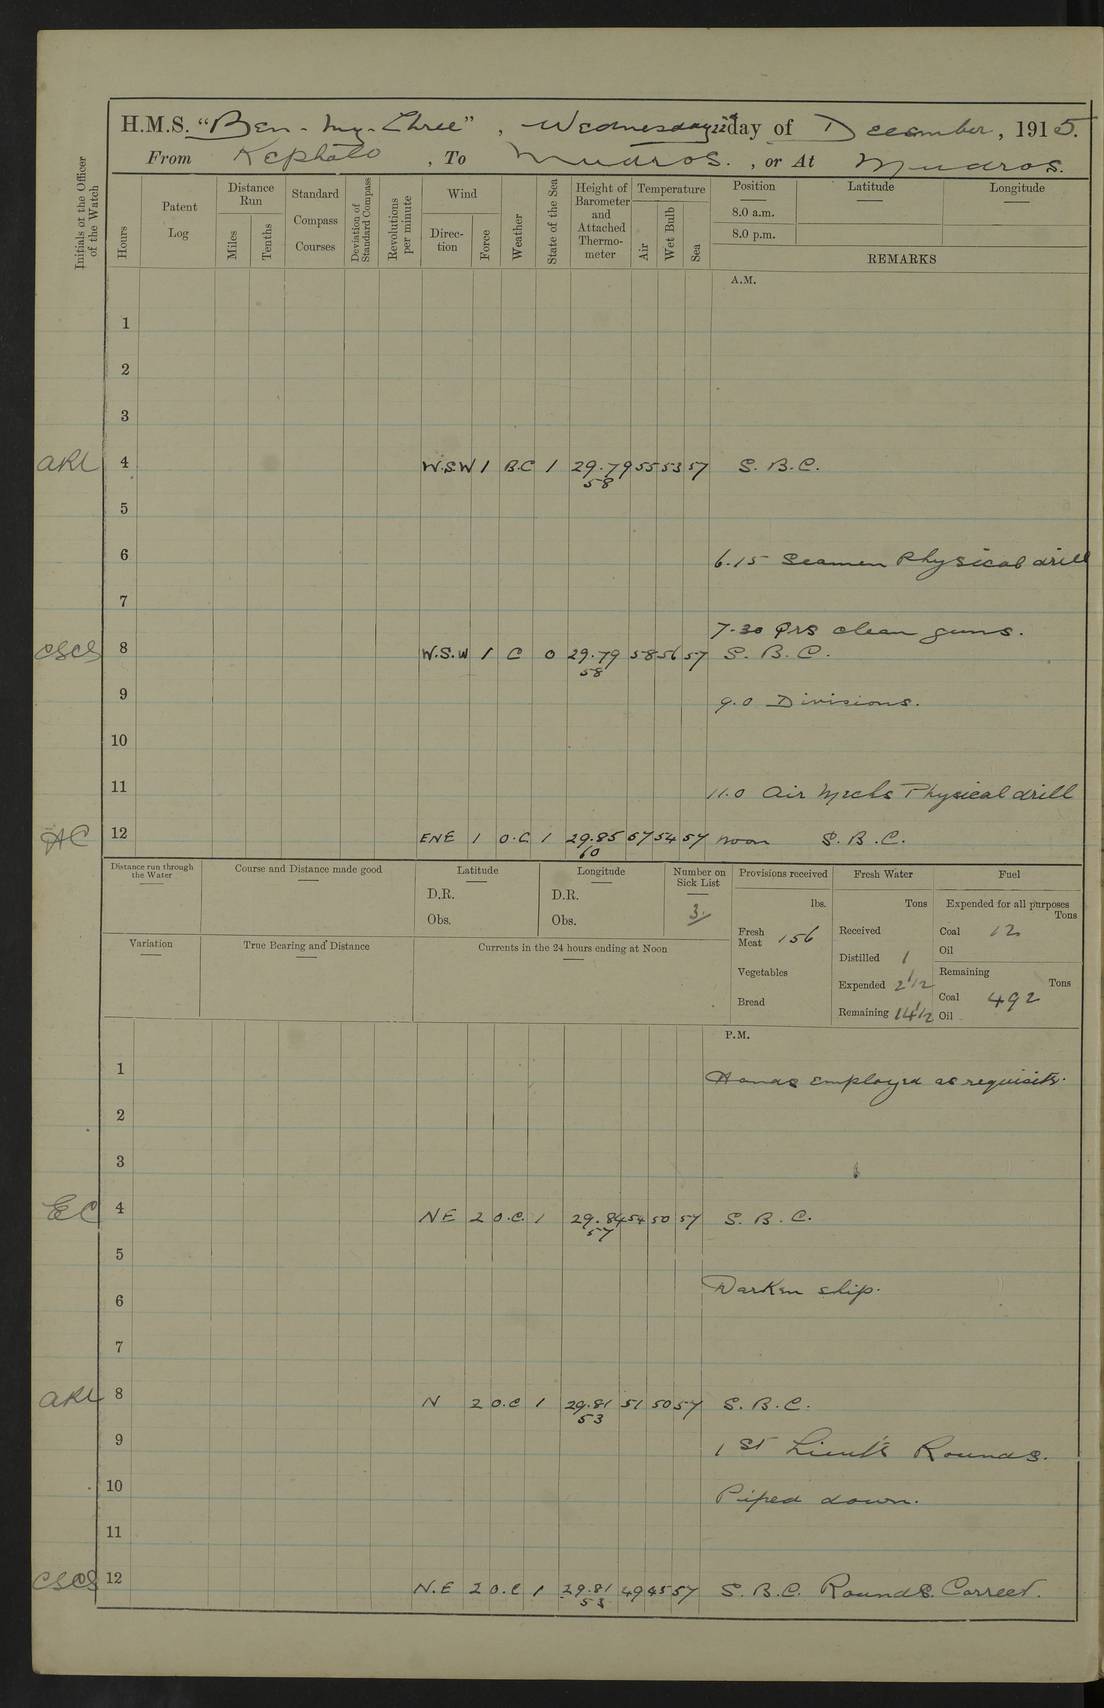 H.M.S. "Ben-my-Chree", Wednesday 22nd day of December, 1915.
From Kephalo, To Mudros., or At Mudros.
Initials of the Officer of the Watch
Hours
Patent Log
Distance Run
Miles
Tenths
Standard Compass Courses
Deviation of Standard Compass
Revolutions per minute
Wind
Direction
Force
Weather
State of the Sea
Height of Barometer and Attached Thermometer
Temperature
Air
Wet Bulb
Sea
Position
8.0 a.m.
8.0 p.m.
Latitude
Longitude
REMARKS
A.M.
1
2
3
ARL 4 W.S.W 1 B.C 1 29.79 55 53 57 S.B.C.
58
5
6 6.15 Seamen Physical drill
7
7.30 Qrs clean guns.
CSCS 8 W.S.W 1 C 0 29.79 58 56 57 S.B.C.
58
9 9.0 Divisions.
10
11 11.0 Air Mechs Physical drill
AC 12 ENE 1 O.C 1 29.85 57 54 57 noon S.B.C.
60
Distance run through the Water
Course and Distance made good
Latitude
D.R.
Obs.
Longitude
D.R.
Obs.
Number on Sick List
3
Provisions received
lbs.
Fresh Meat 156
Vegetables
Bread
Fresh Water
Tons
Received
Distilled 1
Expended 2 1/2
Remaining 14 1/2
Fuel
Expended for all purposes
Tons
Coal 12
Oil
Remaining
Tons
Coal 492
Oil
Variation
True Bearing and Distance
Currents in the 24 hours ending at Noon
P.M.
1 Hands employed as requisite.
2
3
EC 4 NE 2 O.C. 1 29.84 54 50 57 S.B.C.
57
5
Darken ship.
6
7
ARL 8 N 2 O.C 1 29.81 51 50 57 S.B.C.
53
9 1st Lieut's Rounds.
10 Piped down.
11
CSCS 12 N.E 2 O.C 1 29.81 49 45 57 S.B.C. Rounds Correct.
53